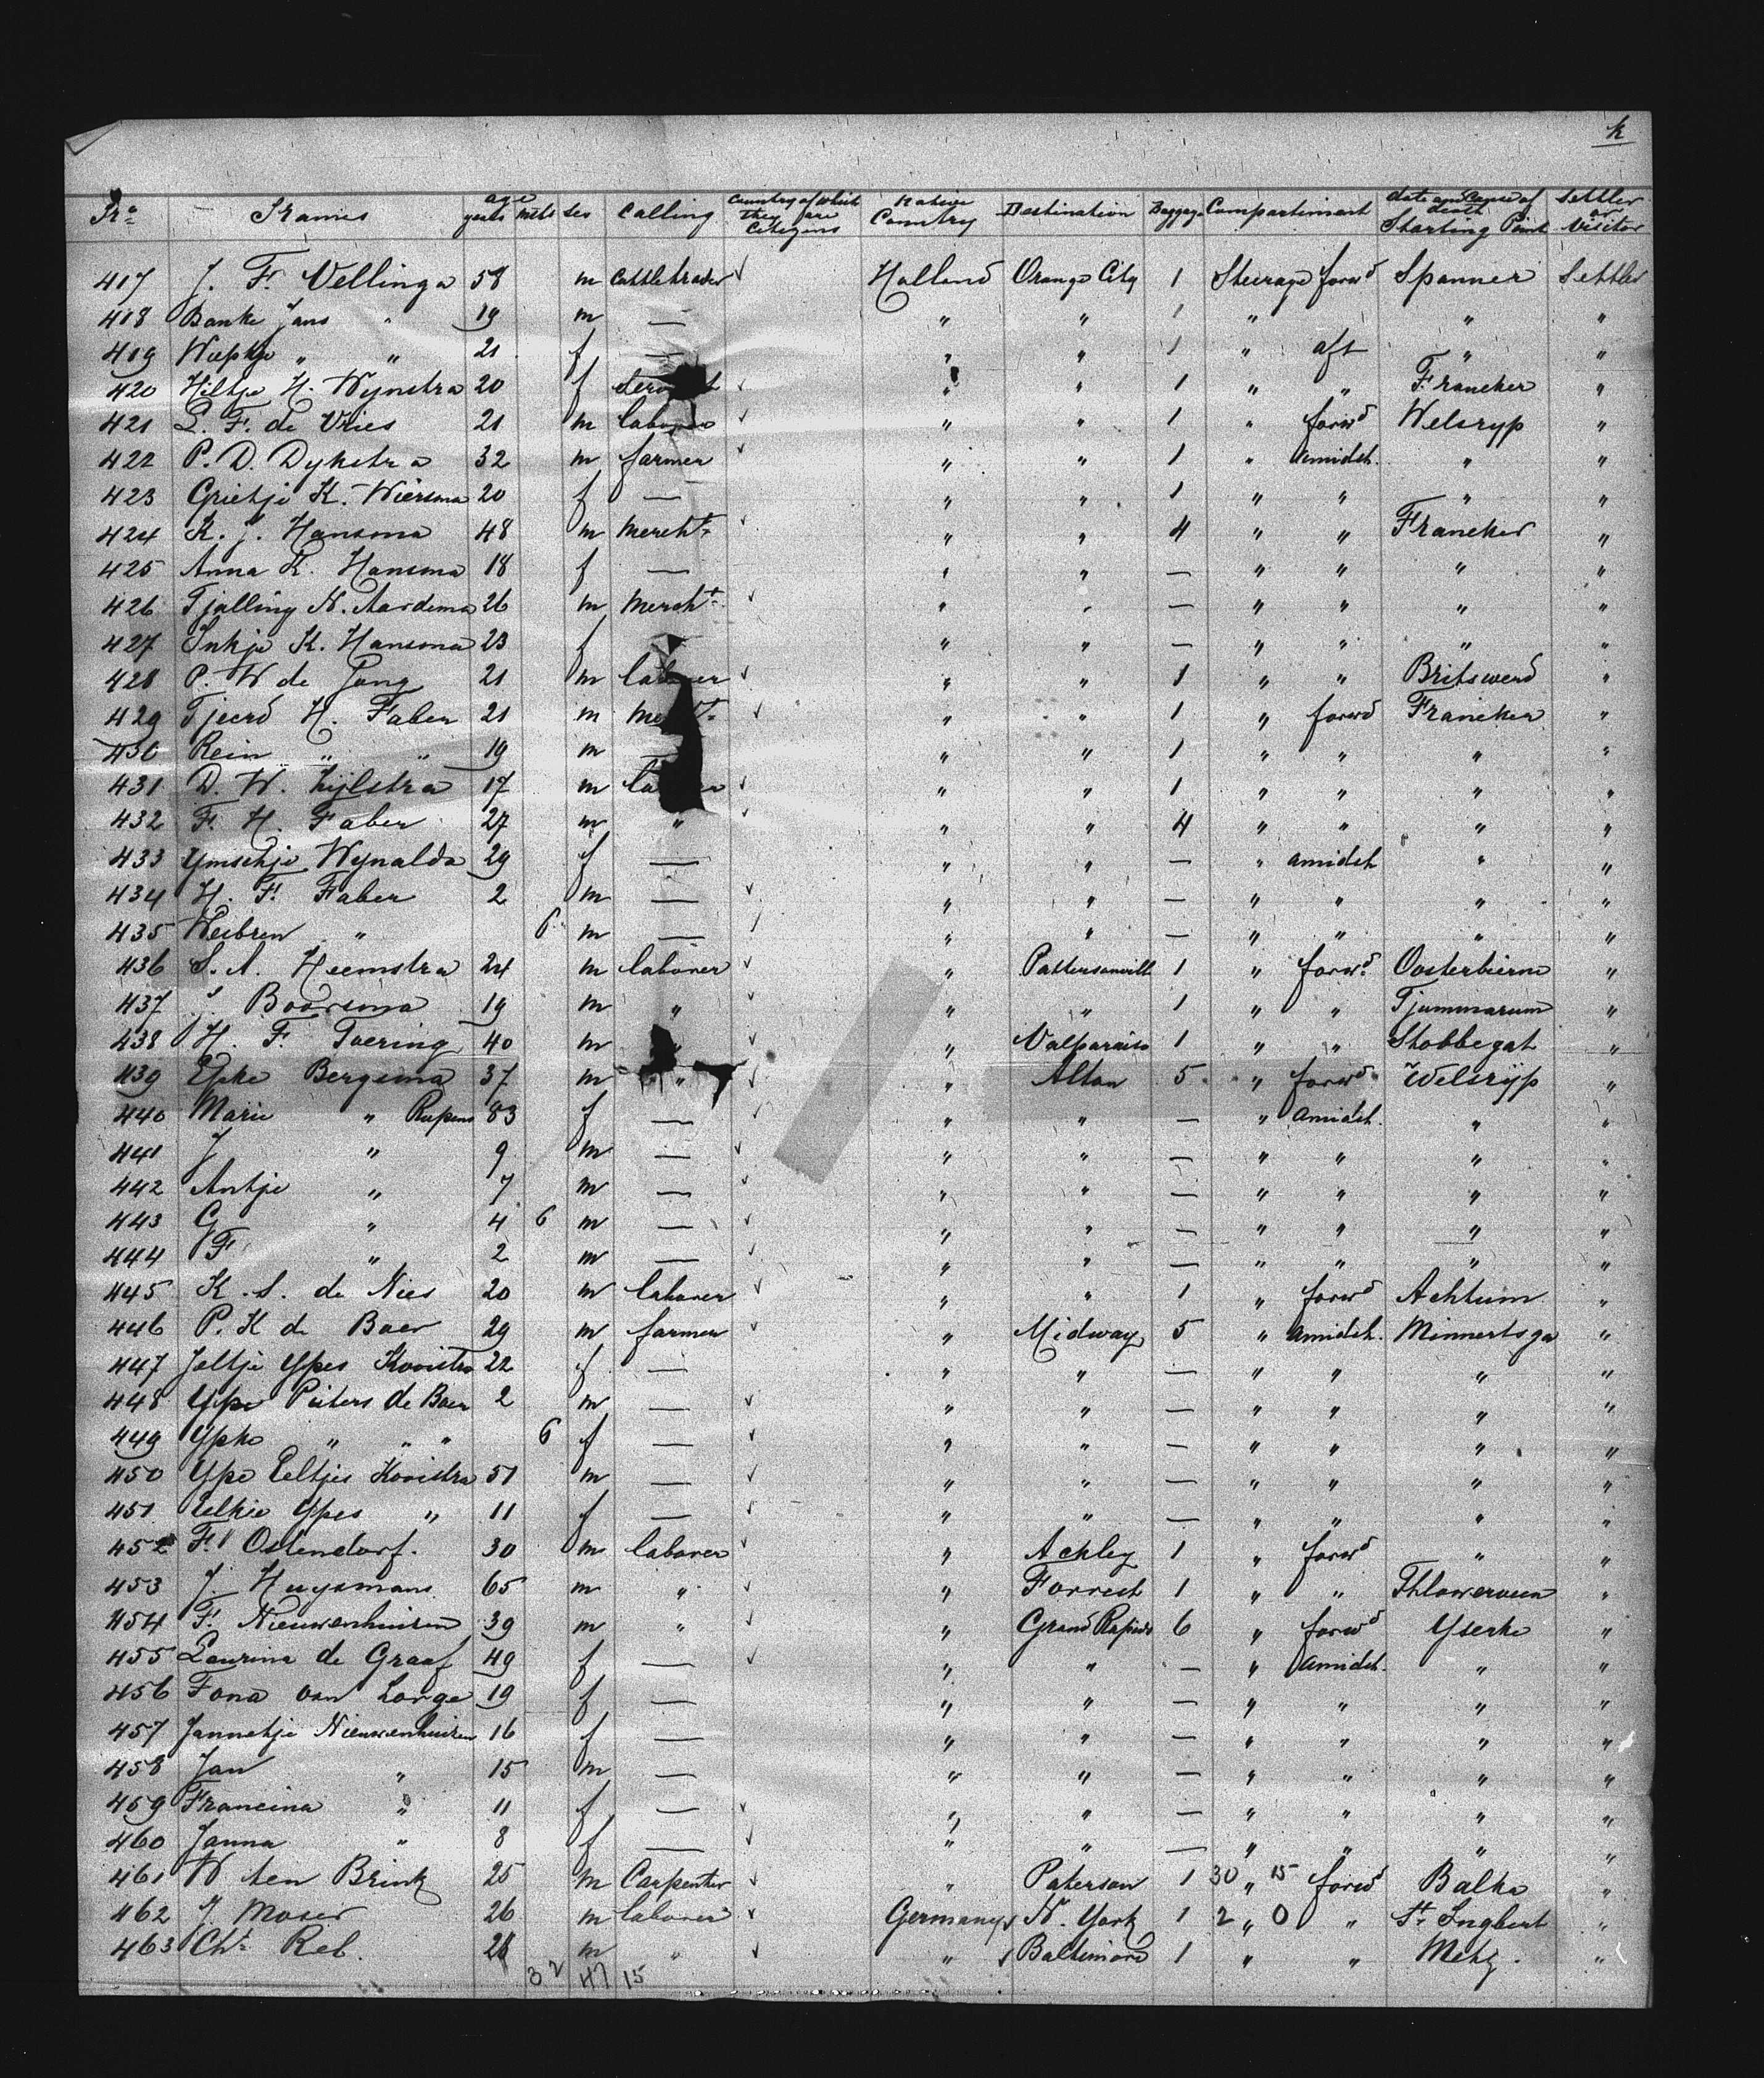 k
No Names age years mths sex Calling Country of which they are Citizens Native Country Destination Baggage Compartiment date and cause of death Starting Point Settler or Visitor
417 J. F. Vellinga 58 m Cattletrader ✓ Holland Orange City 1 Steerage forwd Spanner Settler
418 Banke Jans " 19 m — " " 1 " " "
419 Wiepkje " " 21 f — " " 1 " aft " "
420 Hiltje H. Wynstra 20 f ✓ " " 1 " " Franeker "
421 L. F. de Vries 21 m laborer ✓ " " 1 " forwd Welsryp "
422 P. D. Dykstra 32 m farmer ✓ " " 1 " Amidsh. " "
423 Grietje K. Wiersma 20 f — " " 1 " " " "
424 K. J. Hansma 48 m Mercht ✓ " " 4 " " Franeker "
425 Anna K. Hansma 18 f — " " — " " " "
426 Tjalling N. Aardema 26 m Mercht ✓ " " — " " " "
427 Inkje K. Hansma 23 f " " — " " " "
428 P. W de Jong 21 m laborer ✓ " " 1 " " Britswerd "
429 Tjeerd H. Faber 21 m ✓ " " 1 " forwd Franeker "
430 Rein " " 19 m " " 1 " " " "
431 D. W. Zijlstra 17 m ✓ " " 1 " " " "
432 F. H. Faber 27 m " ✓ " " 4 " " " "
433 Ymschje Wynalda 29 f — " " — " amidsh " "
434 H. F. Faber 2 m — ✓ " " — " " " "
435 Wesbren " 6 m — ✓ " " — " " " "
436 S. A. Heemstra 24 m laborer ✓ " Pattersonvill 1 " forwd Oosterbierm "
437 J. Boorsma 19 m " ✓ " " 1 " " Tjummarum "
438 H. F. Toering 40 m " ✓ " Valparaiso 1 " " Stobbegat "
439 Epke Bergsma 37 m " ✓ " Alton 5 " forwd Welsryp "
440 Marie " Rupens 83 f — ✓ " " — " Amidsh. " "
441 J " 9 m — ✓ " " — " " " "
442 Antje " 7 m — ✓ " " — " " " "
443 G " 4 6 m — ✓ " " — " " " "
444 F " 2 m — ✓ " " — " " " "
445 K. S. de Nies 20 m laborer ✓ " " 1 " forwd Achlum "
446 P. K de Boer 29 m farmer ✓ " Midway 5 " Amidsh. Minnertsga "
447 Jeltje Ypes Kooistra 22 f — " " — " " " "
448 Ype Pieters de Boer 2 m — ✓ " " — " " " "
449 Ypke " " " 6 f — ✓ " " — " " " "
450 Ype Eeltjes Kooistra 51 m — ✓ " " — " " " "
451 Eelkie Ypes " 11 f — ✓ " " — " " " "
452 F. Ostendorf. 30 m laborer ✓ " Ackley 1 " forwd " "
453 J. Huysmans 65 m " ✓ " Forrest 1 " " "
454 F. Nieuwenhuisen 39 m " ✓ " Grand Rapids 6 " forwd Yserke "
455 Laurina de Graaf 49 f — ✓ " " — " Amidsh. " "
456 Fona van Lorge 19 f — " " — " " " "
457 Jannetje Nieuwenhuizen 16 f — " " — " " " "
458 Jan " 15 m — " " — " " " "
459 Francina " 11 f — ✓ " " — " " " "
460 Janna " 8 f — ✓ " " — " " " "
461 W. ten Brink 25 m Carpenter ✓ " Paterson 1 30 " 15 forwd Balke "
462 J Moser 26 m laborer ✓ Germany N. York 1 2 " 0 " St. Ingbert "
463 Cht Reb. m " ✓ " Baltimore 1 " " Metz. "
32 47 15